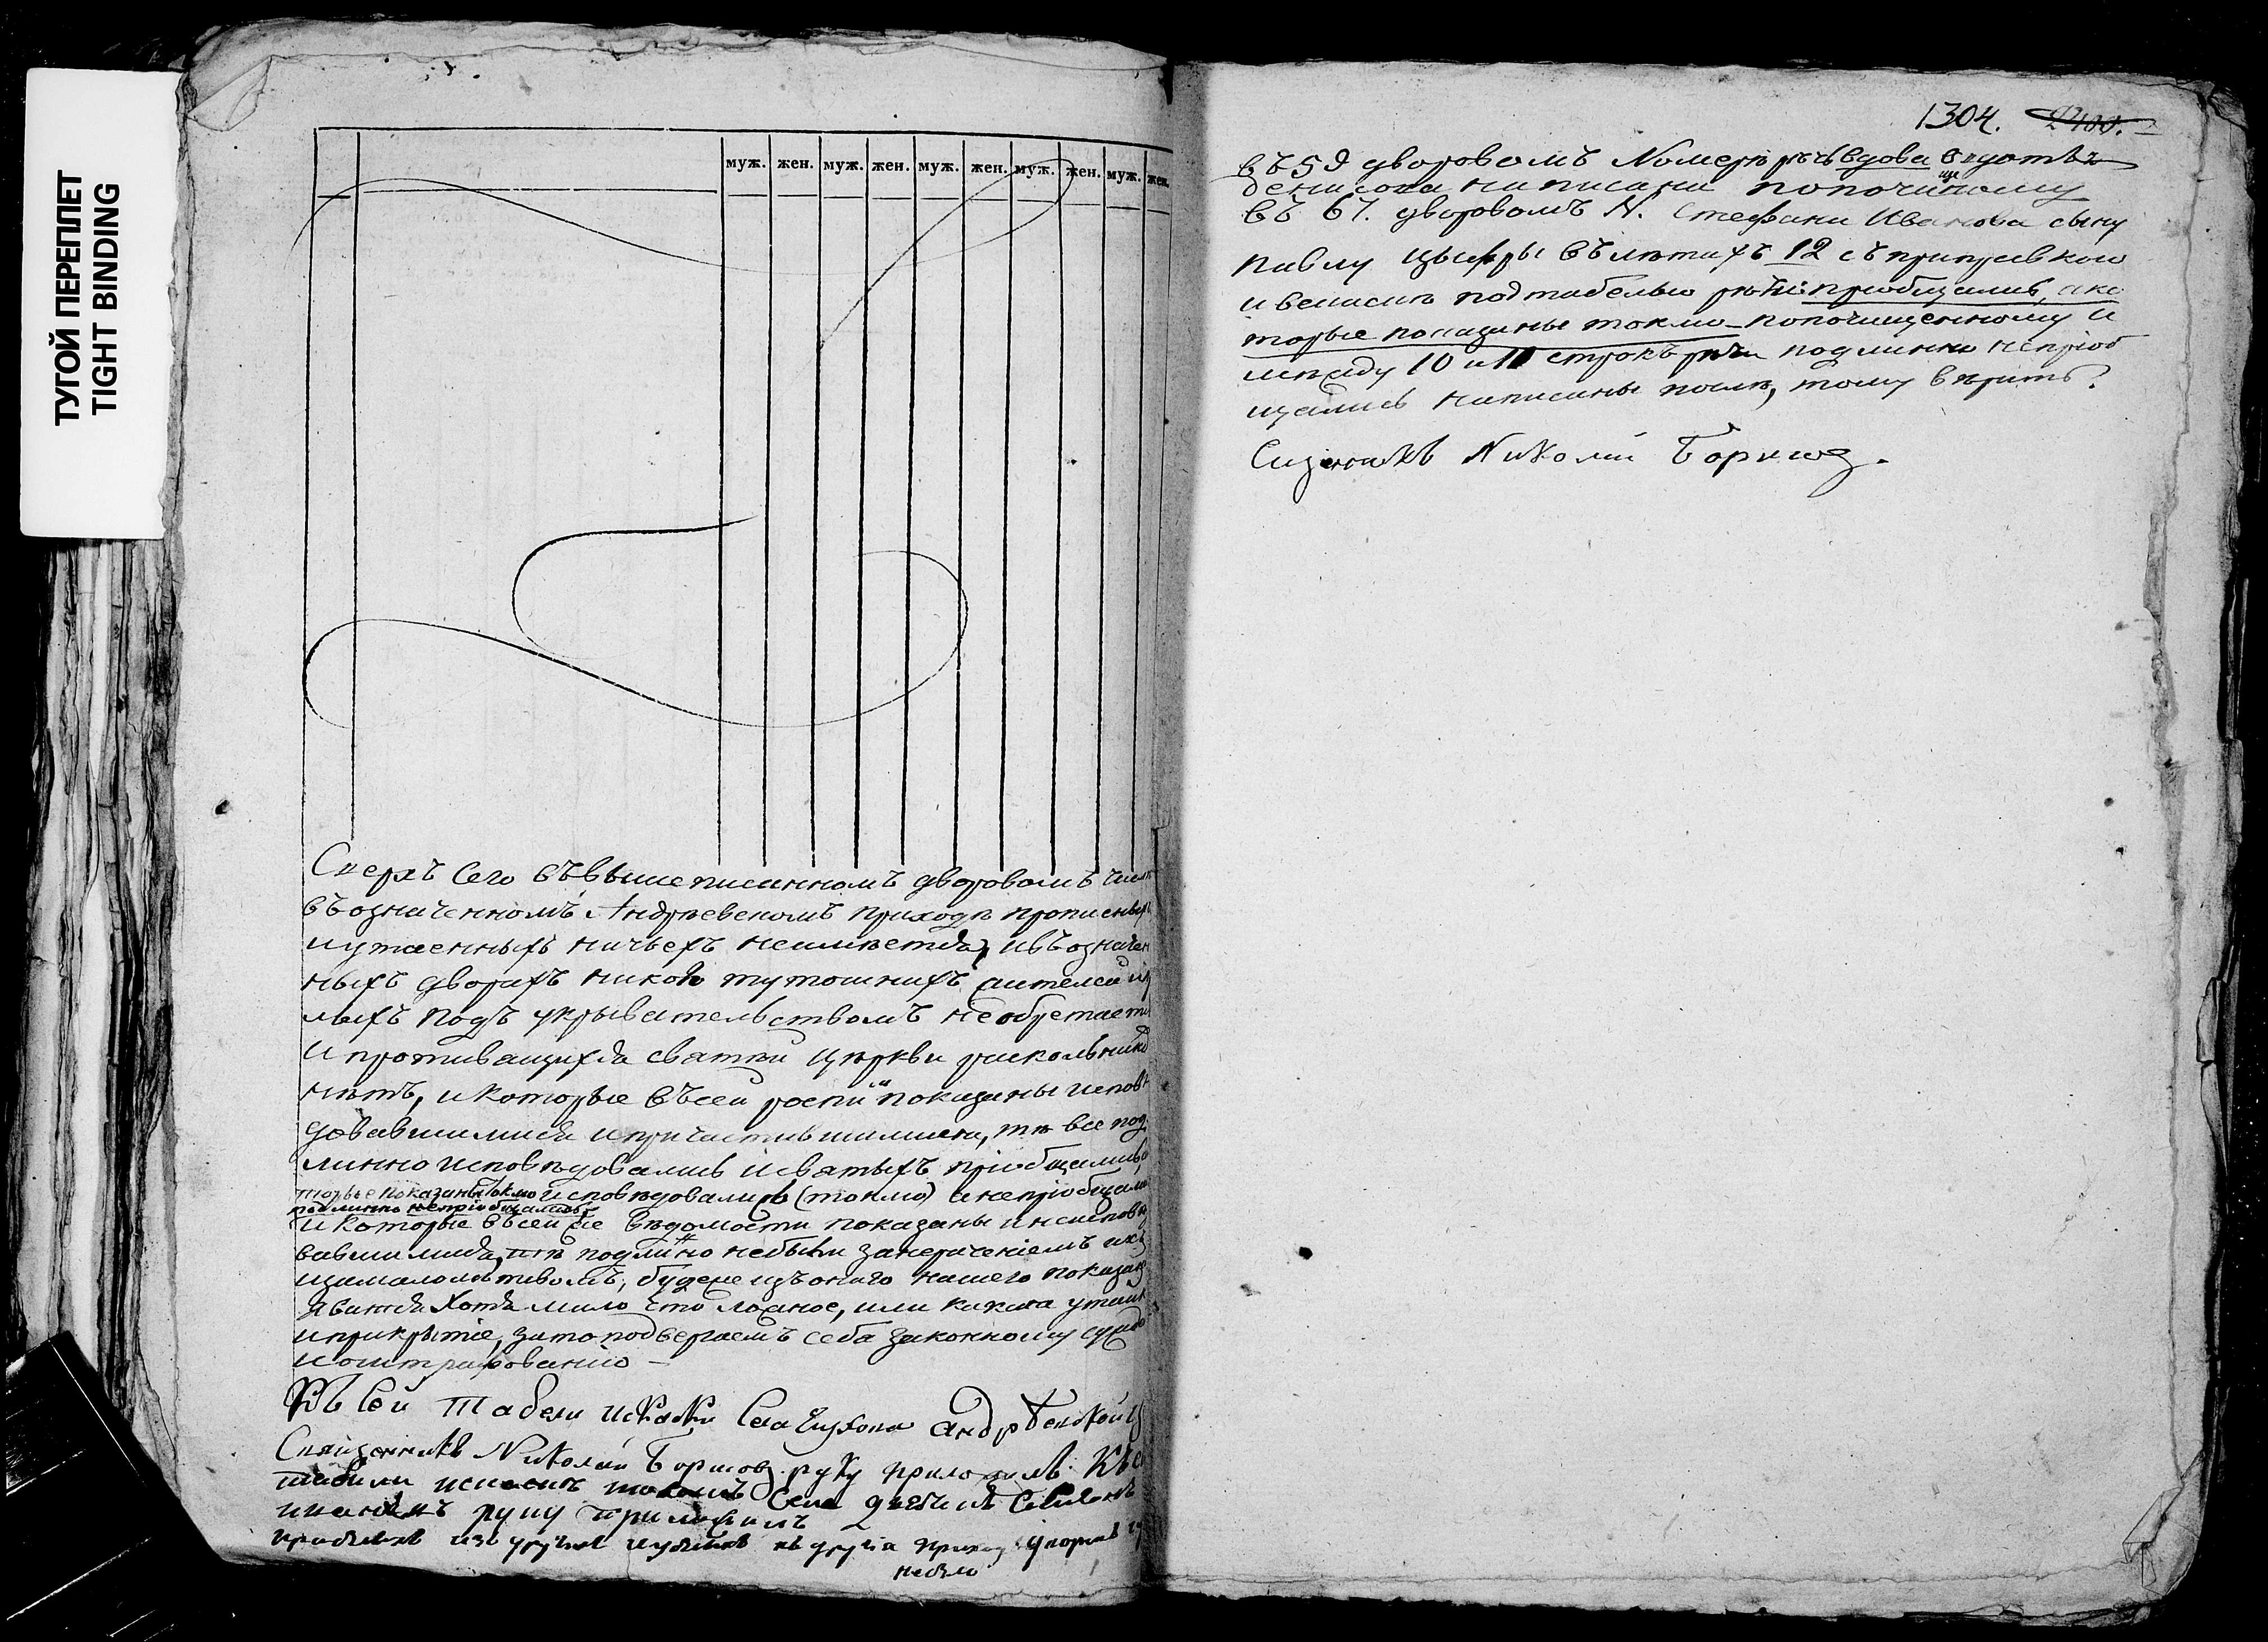 ТУГОЙ ПЕРЕПЛЕТ
TIGHT BINDING
муж. жен. муж. жен. муж. жен. муж. жен. муж. жен.
Сверхъ сего въ вышеписанномъ дворовомъ числѣ
въ означенномъ Андрѣевскомъ приходѣ прописныхъ
и утаенныхъ ничьехъ неимѣетца, и въ означен
ныхъ дворахъ никого тутошнихъ жителей и
подъ укрывательствомъ необретаетца
и противящихся святѣй цѣркви раскольниковъ
нѣтъ, и которые въ сей росписи показаны исповѣ
довавшимися и причастившимися, тѣ все под
линно исповѣдовались и святыхъ пріобщались, а
торые показаны токмо исповѣдовались (токмо) а непріобщались
подлинно непріобщались
и которые въ сей же вѣдомости показаны и неисповѣдо
вавшимися, тѣ подлинно небыли за нерачениемъ ихъ
и за малолѣтивомъ, буде же изъ онаго нашего показания
явится хотя мало что ложное, или какая утайка
и прикрытіе, за то подвергаемъ себя законному суждению
и оштрафованію
Къ сей табели и скаски села Андрѣевской
Священникъ Николай Борисовъ руку приложилъ Къ сей
руку приложилъ
небыло
1304.
въ 59 дворовомъ Номерѣ вдова
денисова написана попочищеному
въ 67. дворовомъ N. Стефана Иванова сыну
Павлу цыфры въ лѣтахъ 12 съ приправкою
и въ писмѣ под табелью рѣчи пріобщались, а ко
торые показаны токмо попочищенному и
между 10 и 11 строкъ рѣчи подлинно непріоб
щались написаны послѣ, тому вѣрить.
Священникъ Николай Борисовъ.